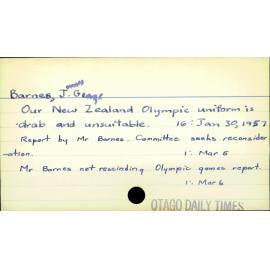 Barnes, J. George
Our New Zealand Olympic uniform is
drab and unsuitable. 16: Jan 30, 1957
Report by Mr Barnes. Committee seeks reconsider
-ation. 1: Mar 5
Mr Barnes not rescinding Olympic games report.
1: Mar 6
OTAGO DAILY TIMES